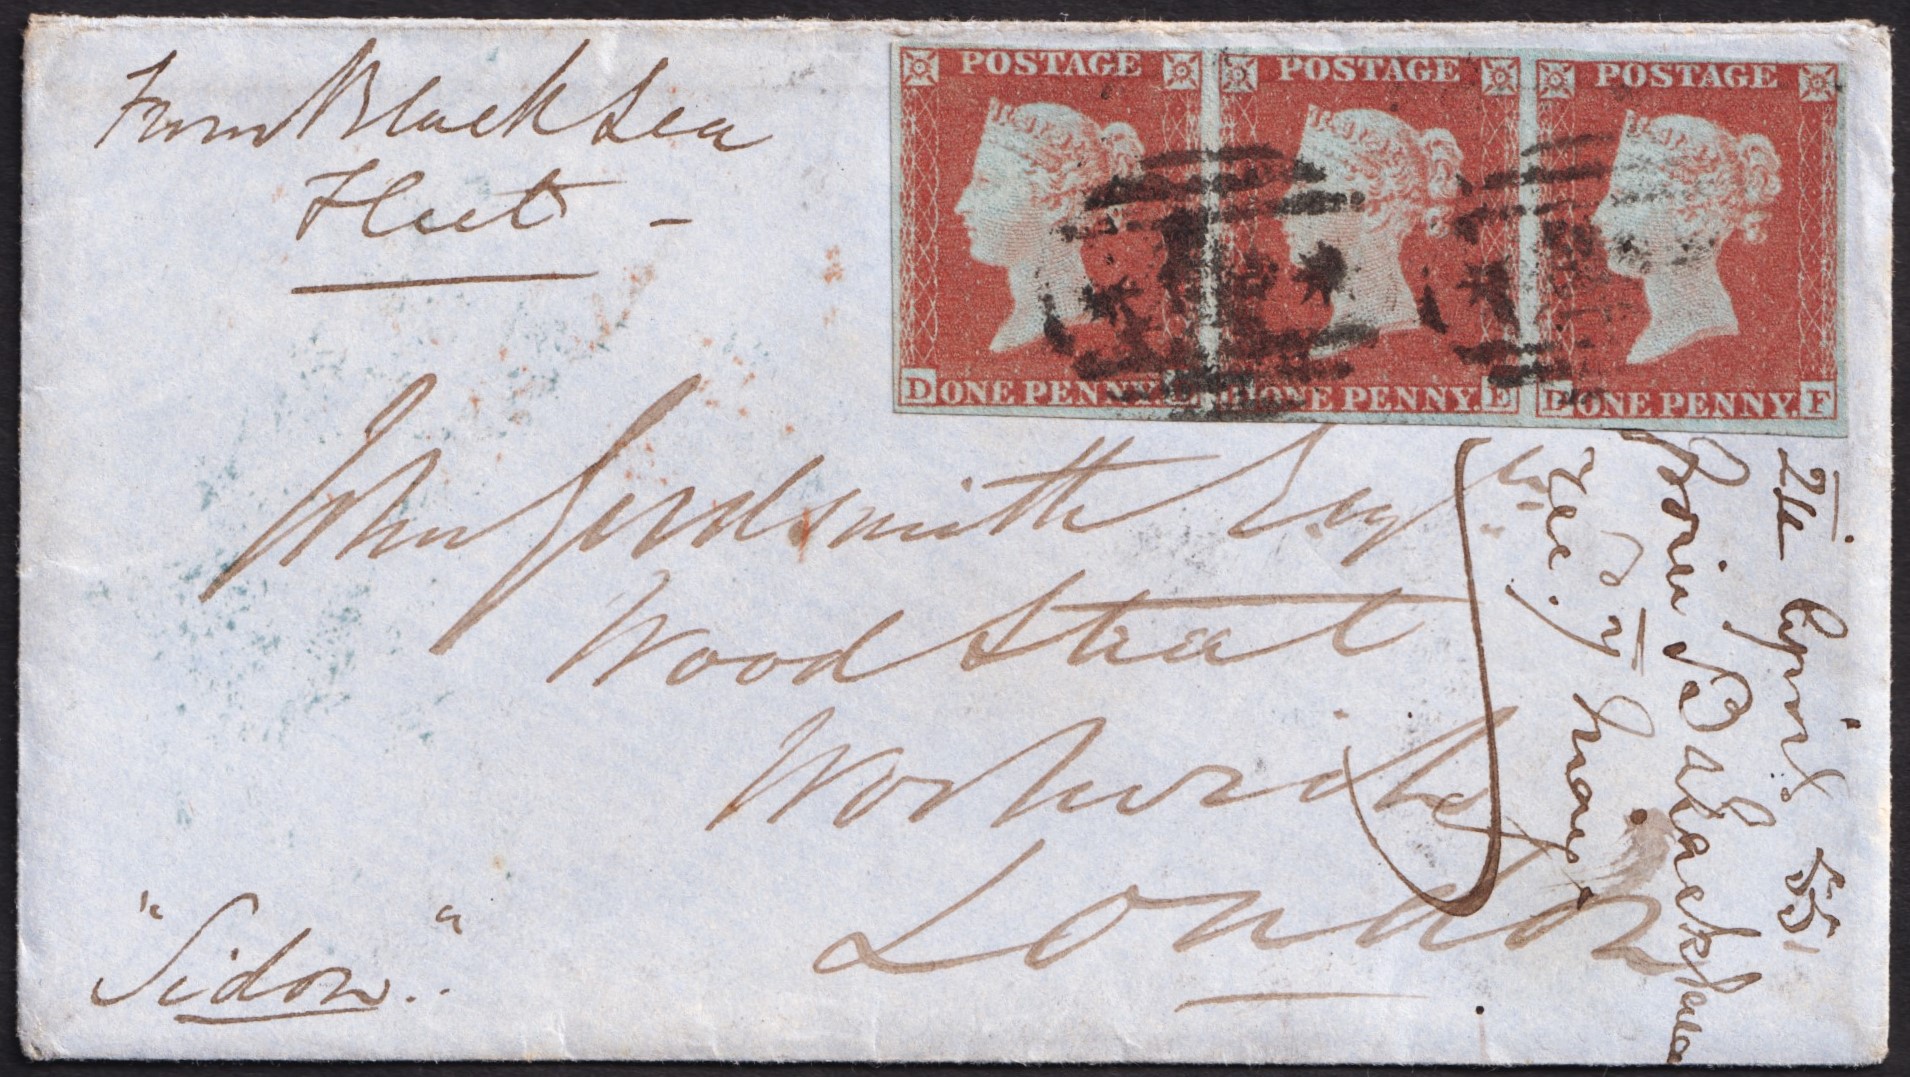 From Black Sea
Fleet -
POSTAGE
POSTAGE
POSTAGE
D ONE PENNY.
ONE PENNY. E
D ONE PENNY. F
John Goldsmith Esqr
Wood Street
Woolwich
London
"Sidon."
24 April 55
Black Sea